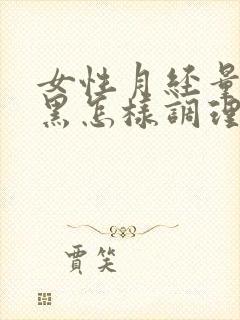 女性月经量
黑怎样調理
賈笑